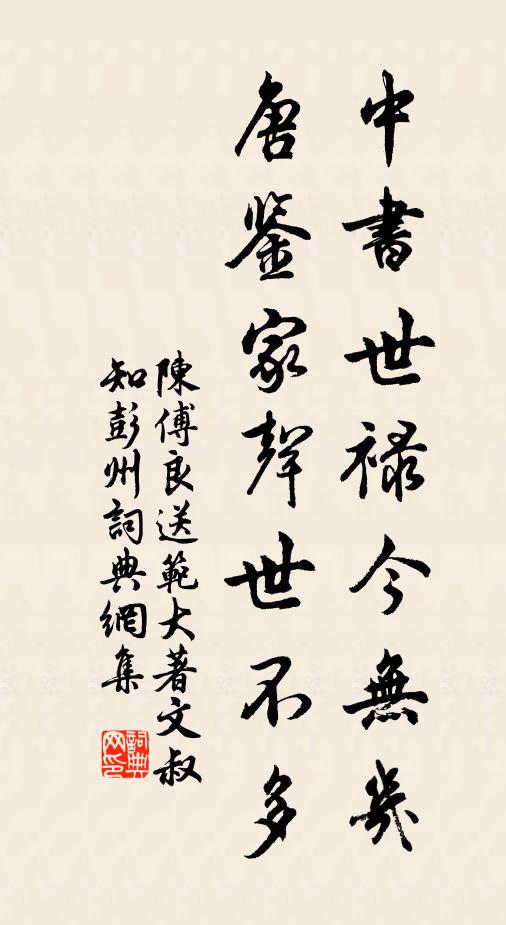 中書世禄今無幾
唐鋻家聲世不多
陳傅良送範大著文叔
知彭州詞典網集
詞典網印